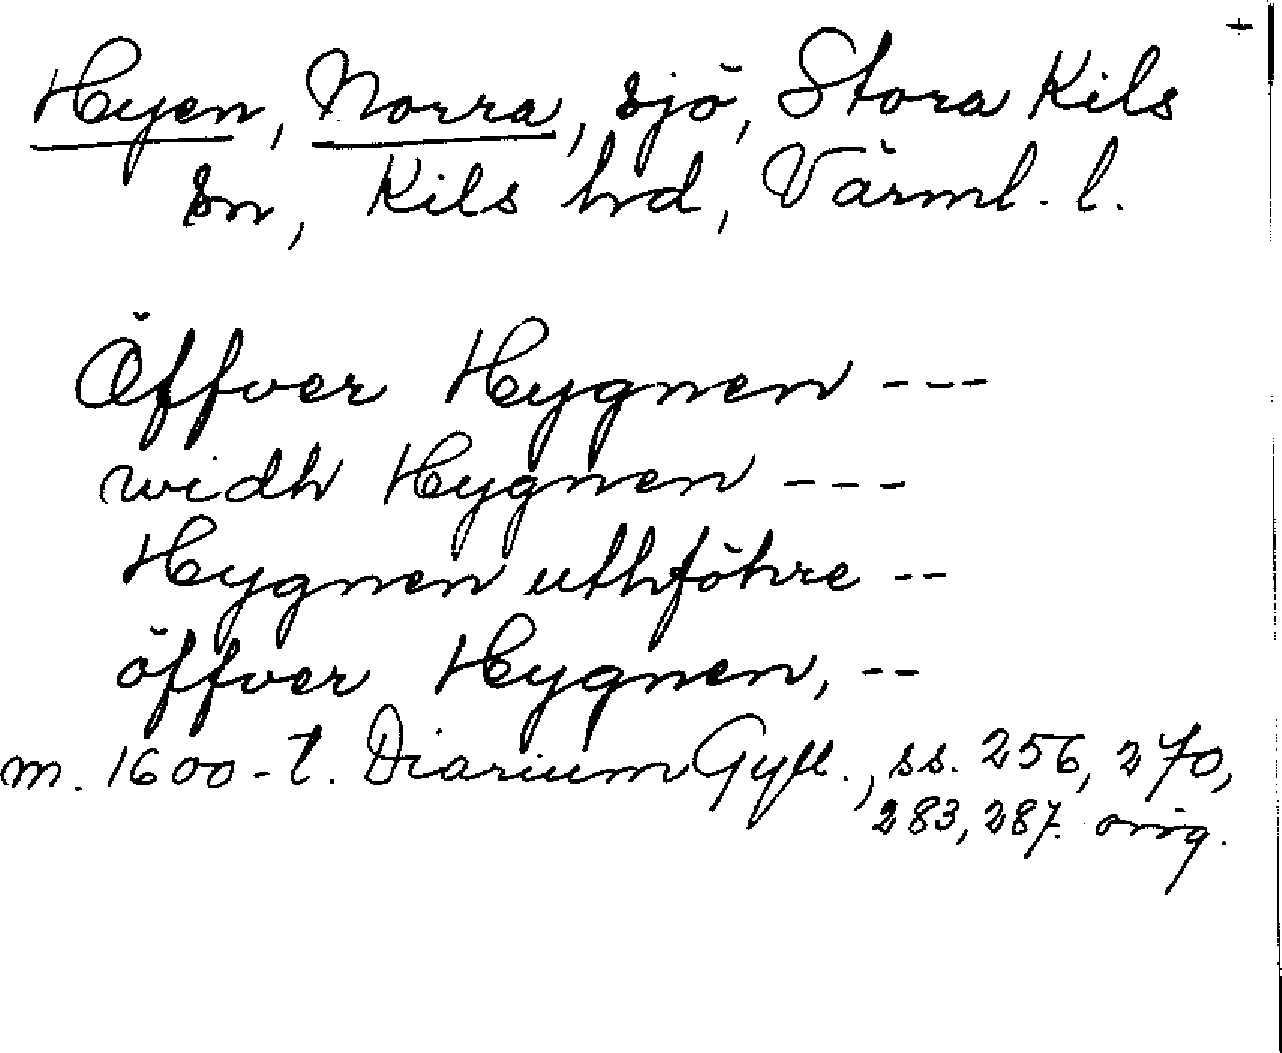 +
Hyen, Norra, sjö, Stora Kils
sn, Kils hd, Värml. l.
Öffver Hygnen ---
widh Hygnen ---
Hygnen uthföhre --
öffver Hygnen, --
m. 1600-t. Diarium Gyll., ss. 256, 270,
283, 287. orig.